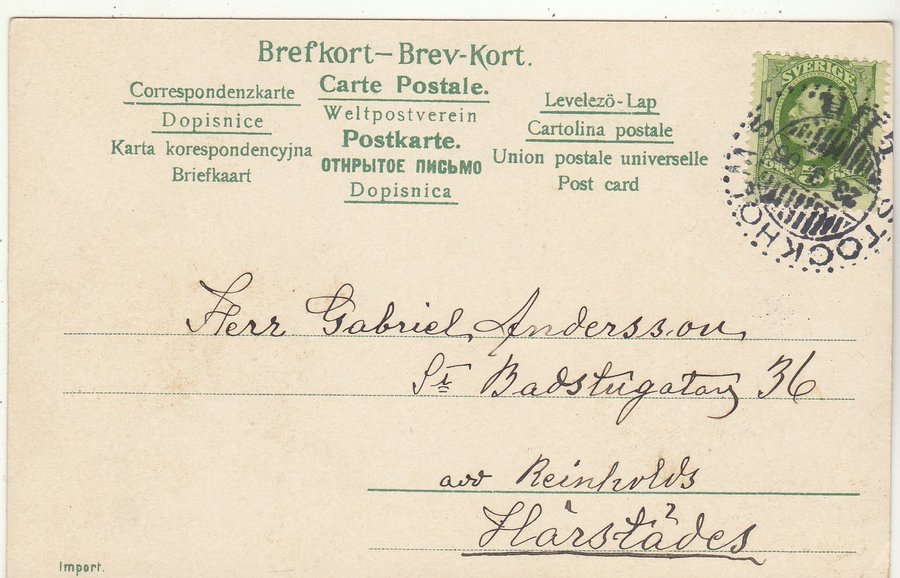 Brefkort — Brev-Kort.
Correspondenzkarte
Dopisnice
Karta korespondencyjna
Briefkaart
Carte Postale.
Weltpostverein
Postkarte.
ОТКРЫТОЕ ПИСЬМО
Dopisnica
Levelező-Lap
Cartolina postale
Union postale universelle
Post card
SVERIGE
STOCKHOLM
Herr Gabriel Andersson,
St Badstugatan 36
adr Reinholds
Härstädes
Import.